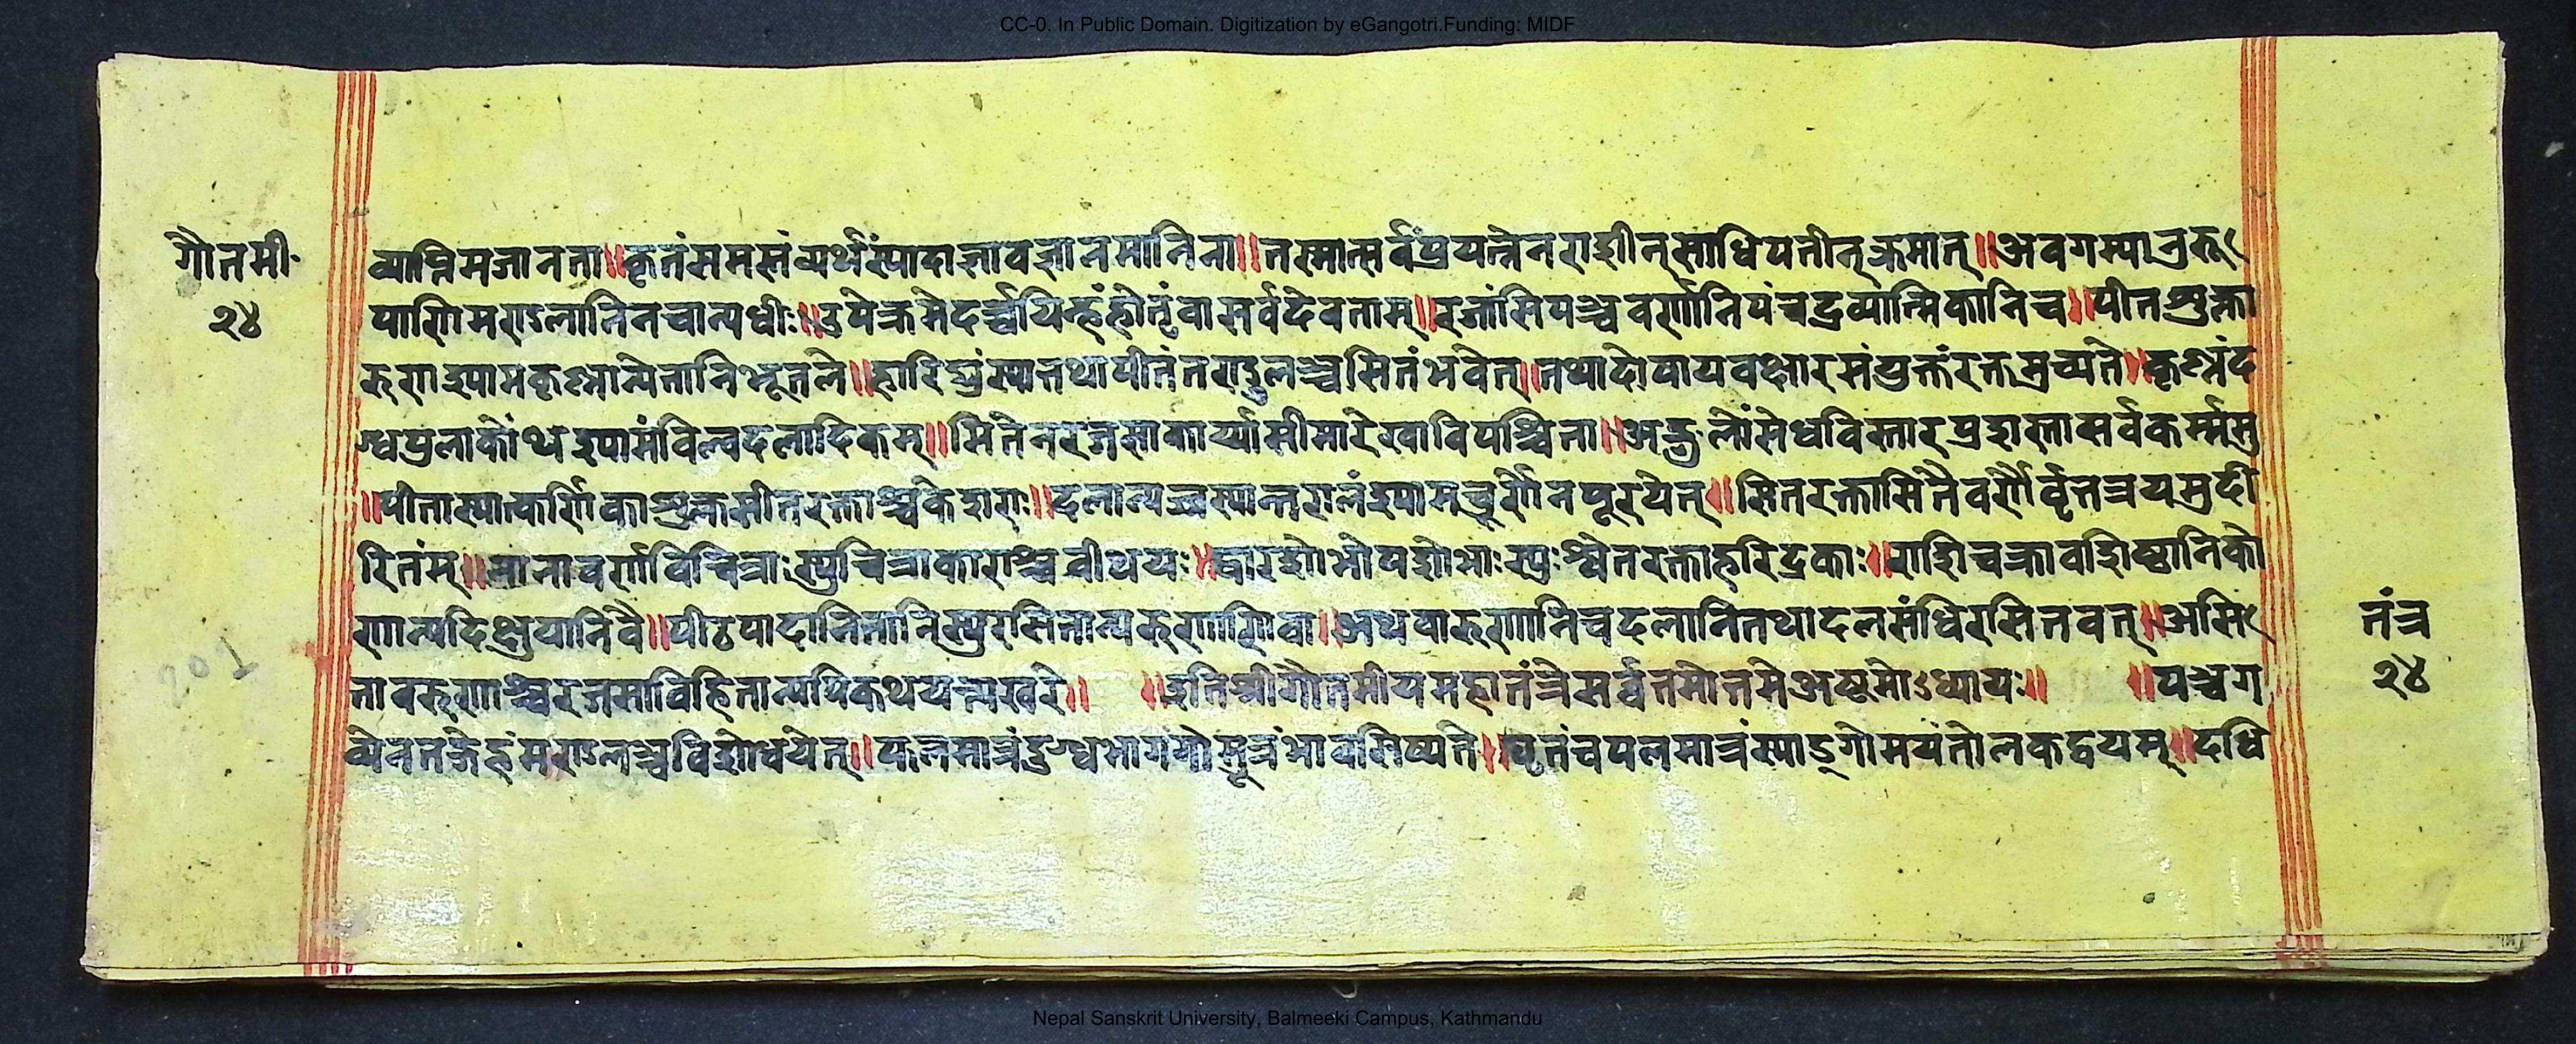 CC-0. In Public Domain. Digitization by eGangotri.Funding: MIDF
गौतमी॰
२४
व्याप्तिमजानता॥कृतंसमस्तंव्यर्थंस्यादाज्ञावज्ञानमानिना॥तस्मात्सर्वंप्रयत्नेनराशीन्साधिपतीन्क्रमात्॥अवगम्यानुरू
पाणिमण्डलानिनचान्यधीः॥उपक्रमेदर्च्चयितुंहोतुंवासर्वदेवताम्॥रजांसिपञ्चवर्णानिपंचद्रव्यात्मिकानिच॥पीतशुक्ला
रुणश्यामकृष्णान्येतानिभूतले॥हारिद्रंस्यात्तथापीतंतण्डुलञ्चसितंभवेत्॥तथादोषायवक्षारसंयुक्तंरक्तमुच्यते॥कृष्णंद
ग्धपुलाकोंथश्यामंविल्वदलादिकम्॥सितेनरजसाकार्य्यासीमारेखाविपश्चिता॥अङ्गुलोंसेधविस्तारप्रशस्तासर्वकर्म्मसु
॥पीतास्यात्कर्णिकाशुक्लसीतरक्ताश्चकेशराः॥दलान्यच्चस्यान्तरालंश्यामचूर्णेनपूरयेत्॥सितरक्तासितैवर्णैर्वृत्तत्रयमुदी
रितंम्॥नानावर्णाविचित्राःस्युचित्राकाराश्चवीथयः॥द्वारशोभोपशोभाःस्युःश्वेतरक्ताहरिद्रकाः॥राशिचक्रावशिष्ठानिको
णान्यदिक्षुयानिवै॥पीठपादानितानिस्युरसितान्यरुणाणिवा॥अथवारुणानिचदलानितथादलसंधिरसितवत्॥असि
तावरुणाश्चरजसाविहितान्यपिकथयन्त्यखरे॥ ॥इतिश्रीगौतमीयमहातंत्रेसर्व्वत्तमोत्तमेअष्टमोऽध्यायः॥ ॥पञ्चग
व्येनतद्गेहंमण्डलञ्चविशोधयेत्॥पलमात्रंदुग्धभागंगोमूत्रंभावसिष्यते॥घृतंचपलमात्रंस्याड्गोमयंतोलकद्वयम्॥दधि
तंत्र
२४
201
Nepal Sanskrit University, Balmeeki Campus, Kathmandu